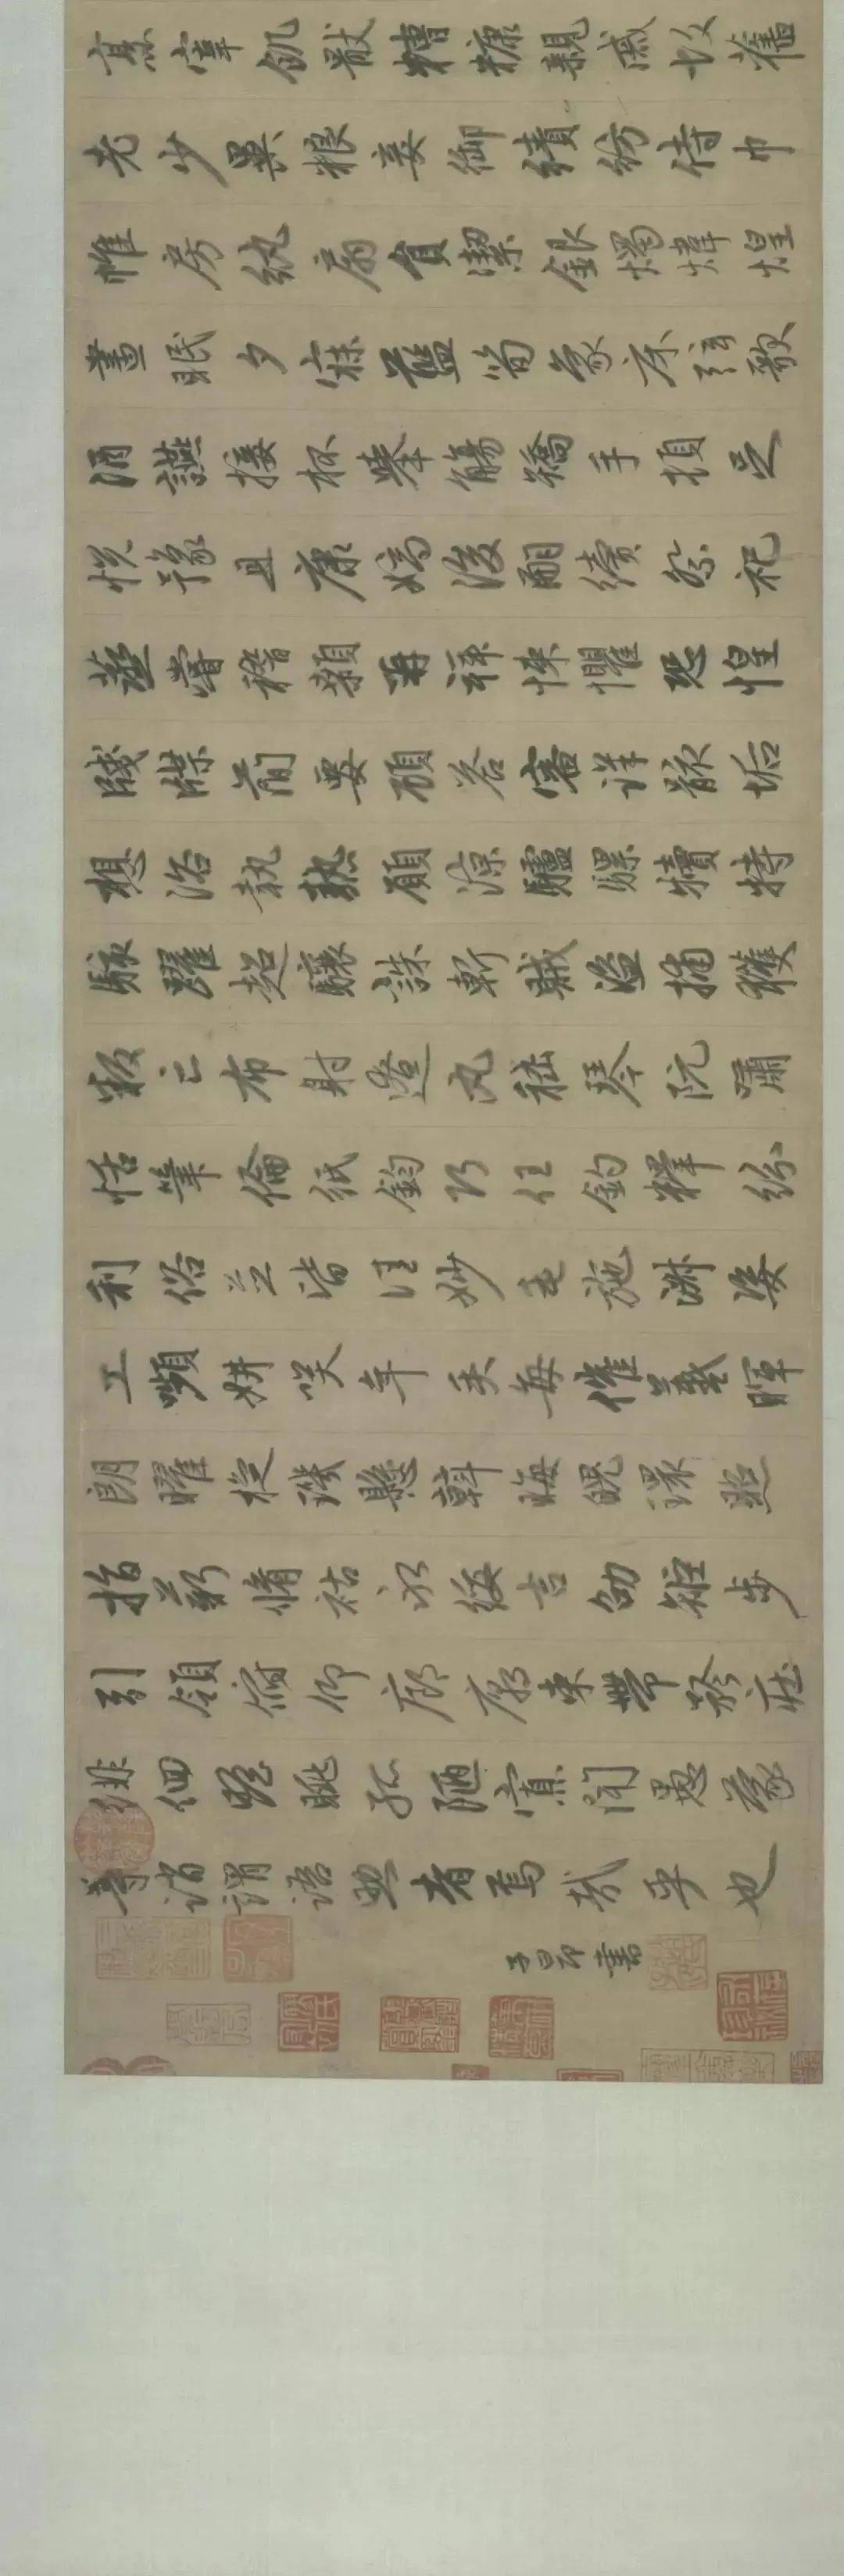 烹宰飢猒糟糠親戚故舊
老少異粮妾御績紡侍巾
帷房紈扇員潔銀燭煒煌
晝眠夕寐藍笋象床弦歌
酒讌接杯舉觴矯手頓足
悅豫且康嫡後嗣續祭祀
蒸嘗稽顙再拜悚懼恐惶
牋牒簡要顧荅審詳骸垢
想浴執熱願涼驢騾犢特
駭躍超驤誅斬賊盜捕獲
叛亡布射遼丸嵇琴阮嘯
恬筆倫紙鈞巧任釣釋紛
利俗並皆佳妙毛施淑姿
工嚬妍咲年矢每催羲暉
朗曜琁璣懸斡晦魄環照
指薪脩祜永綏吉劭矩步
引領俯仰廊廟束帶矜莊
徘徊瞻眺孤陋寡聞愚蒙
等誚謂語助者焉哉乎也
子昂書